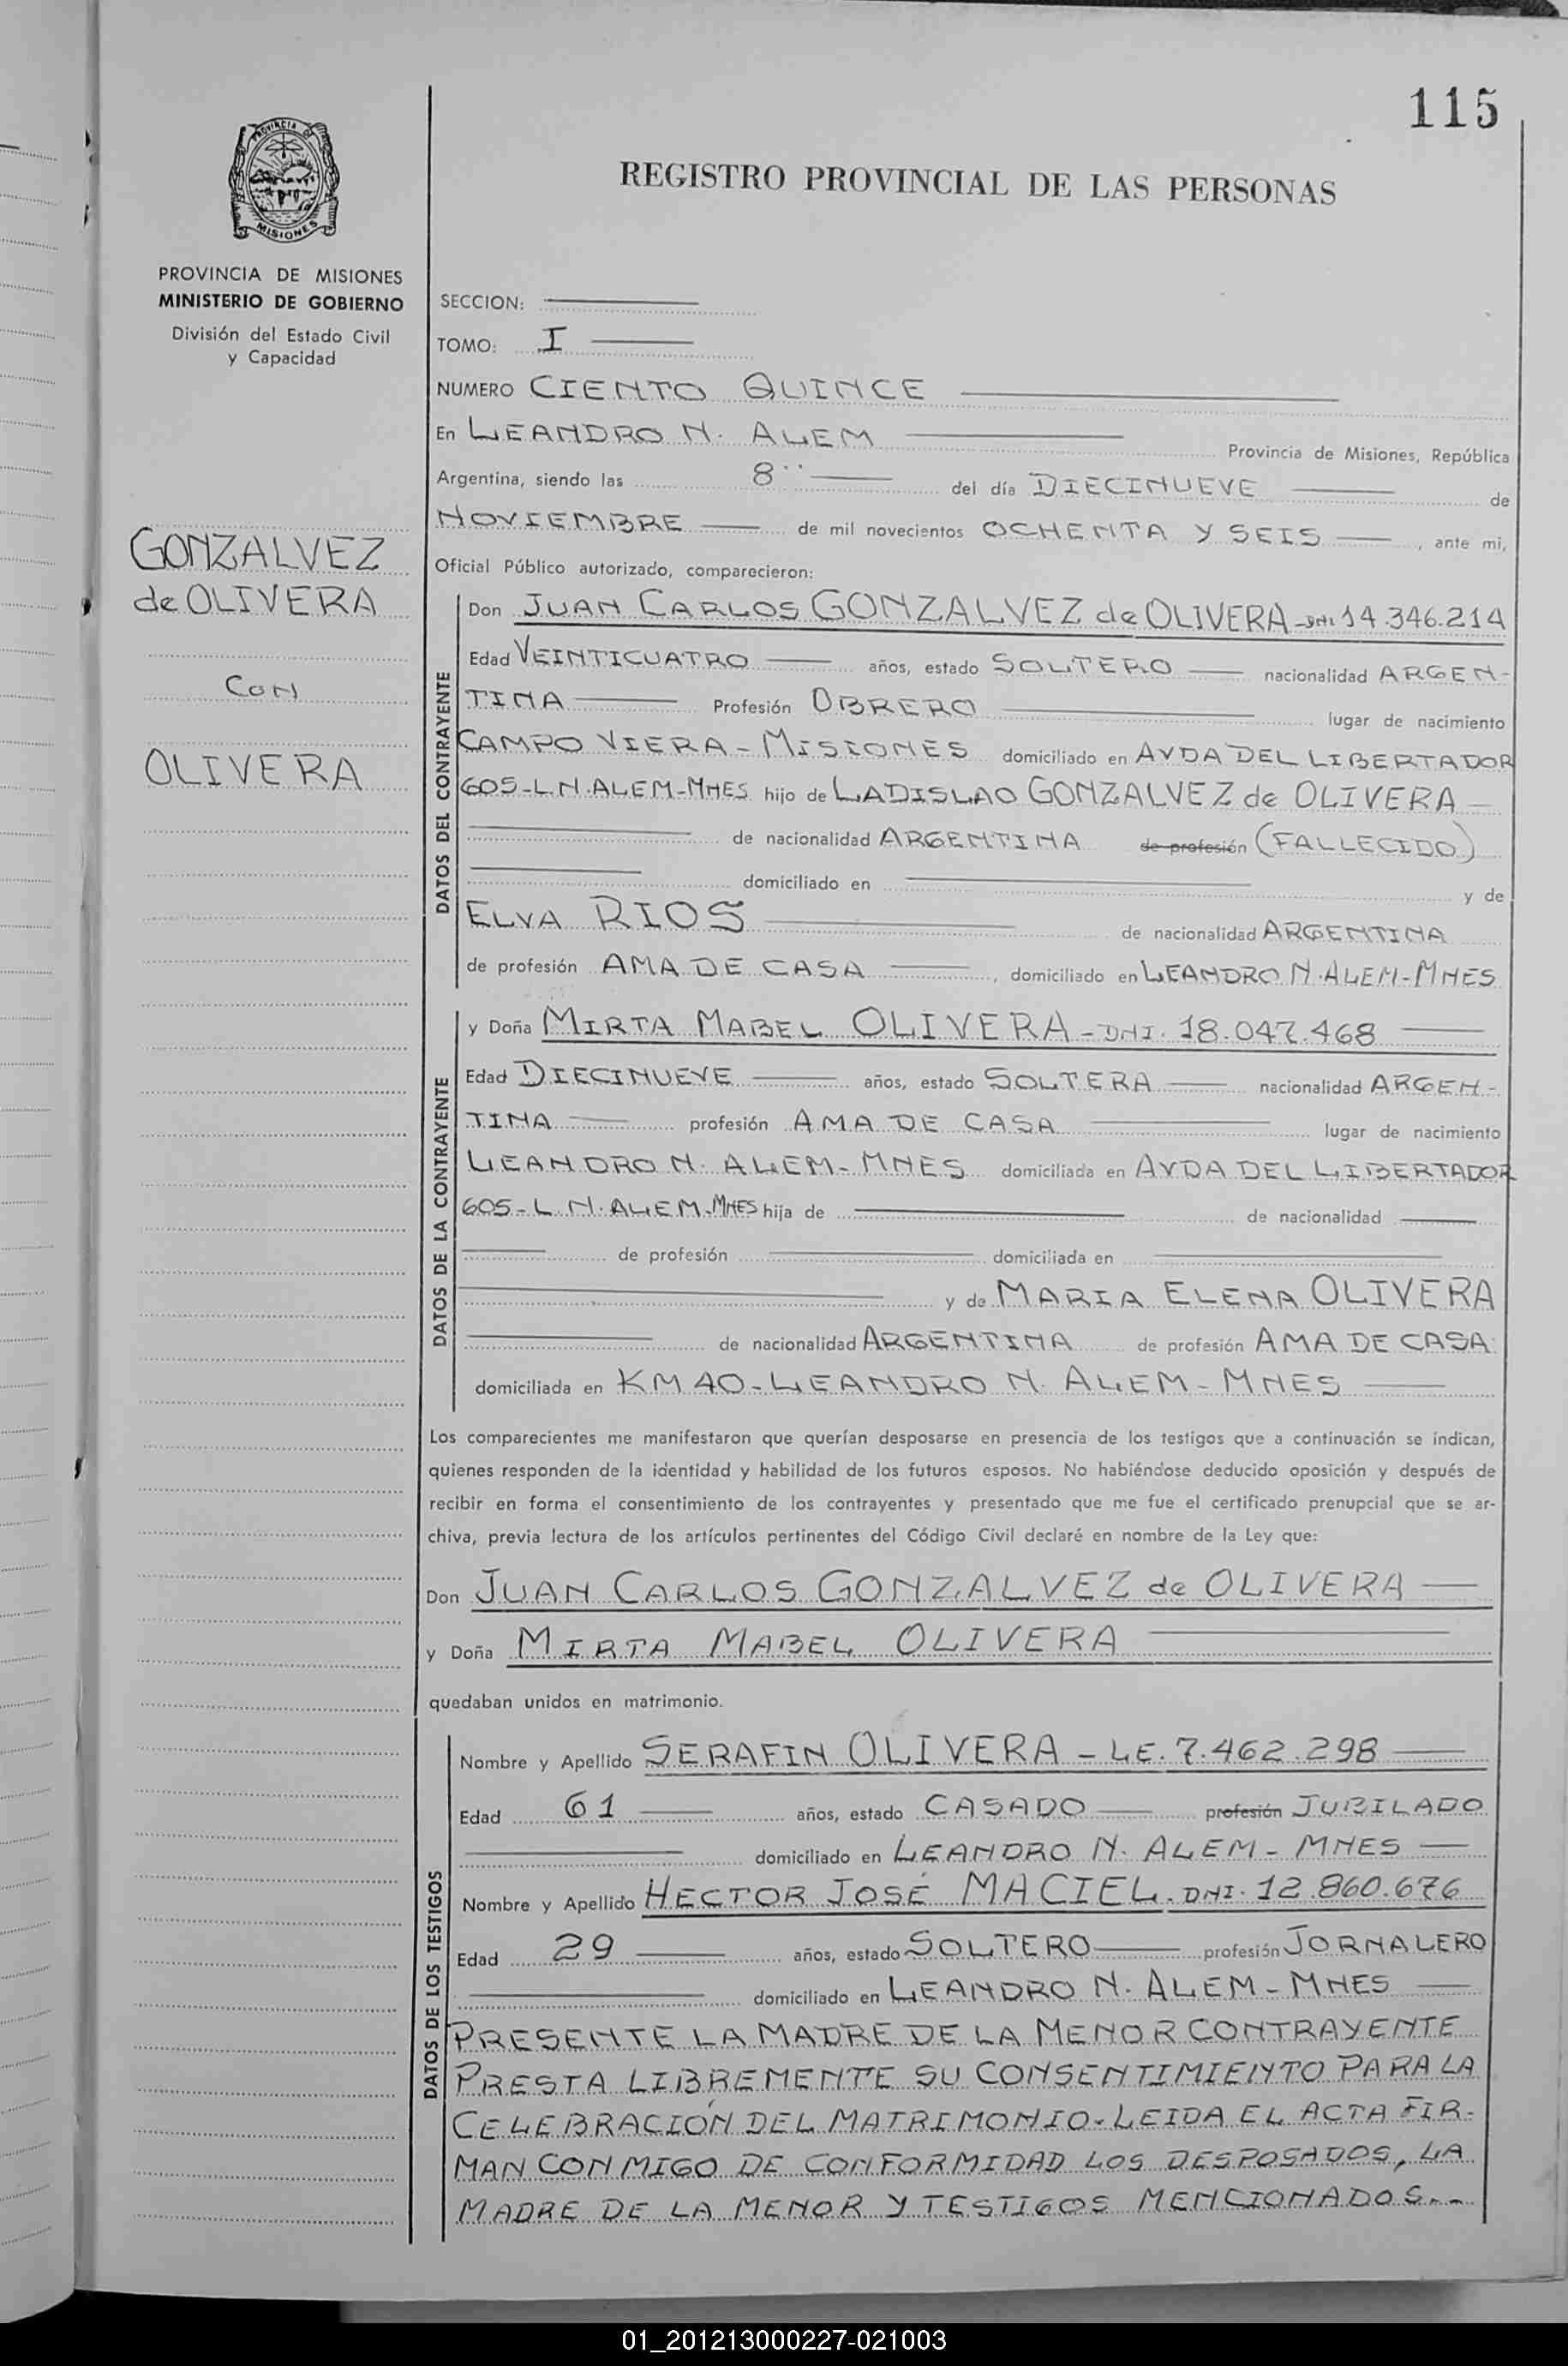 115
REGISTRO PROVINCIAL DE LAS PERSONAS
PROVINCIA DE MISIONES
PROVINCIA DE MISIONES
MINISTERIO DE GOBIERNO
División del Estado Civil
y Capacidad
GONZALVEZ
de OLIVERA
CON
OLIVERA
SECCION:
TOMO: I
NUMERO CIENTO QUINCE
En LEANDRO N. ALEM Provincia de Misiones, República
Argentina, siendo las 8 del día DIECINUEVE de
NOVIEMBRE de mil novecientos OCHENTA Y SEIS, ante mi,
Oficial Público autorizado, comparecieron:
DATOS DEL CONTRAYENTE
Don JUAN CARLOS GONZALVEZ de OLIVERA - DNI 14.346.214
Edad VEINTICUATRO años, estado SOLTERO nacionalidad ARGEN-
TINA Profesión OBRERO lugar de nacimiento
CAMPO VIERA - MISIONES domiciliado en AVDA DEL LIBERTADOR
605-L.N.ALEM-MNES hijo de LADISLAO GONZALVEZ de OLIVERA
de nacionalidad ARGENTINA de profesión (FALLECIDO)
domiciliado en y de
ELVA RIOS de nacionalidad ARGENTINA
de profesión AMA DE CASA, domiciliado en LEANDRO N. ALEM-MNES
DATOS DE LA CONTRAYENTE
y Doña MIRTA MABEL OLIVERA - DNI. 18.047.468
Edad DIECINUEVE años, estado SOLTERA nacionalidad ARGEN-
TINA profesión AMA DE CASA lugar de nacimiento
LEANDRO N. ALEM - MNES domiciliada en AVDA DEL LIBERTADOR
605 - L.N. ALEM - MNES hija de de nacionalidad
de profesión domiciliada en
y de MARIA ELENA OLIVERA
de nacionalidad ARGENTINA de profesión AMA DE CASA
domiciliada en KM 40 - LEANDRO N. ALEM - MNES
Los comparecientes me manifestaron que querían desposarse en presencia de los testigos que a continuación se indican,
quienes responden de la identidad y habilidad de los futuros esposos. No habiéndose deducido oposición y después de
recibir en forma el consentimiento de los contrayentes y presentado que me fue el certificado prenupcial que se ar-
chiva, previa lectura de los artículos pertinentes del Código Civil declaré en nombre de la Ley que:
Don JUAN CARLOS GONZALVEZ de OLIVERA
y Doña MIRTA MABEL OLIVERA
quedaban unidos en matrimonio.
DATOS DE LOS TESTIGOS
Nombre y Apellido SERAFIN OLIVERA - LE. 7.462.298
Edad 61 años, estado CASADO profesión JUBILADO
domiciliado en LEANDRO N. ALEM - MNES
Nombre y Apellido HECTOR JOSÉ MACIEL. DNI. 12.860.676
Edad 29 años, estado SOLTERO profesión JORNALERO
domiciliado en LEANDRO N. ALEM - MNES
PRESENTE LA MADRE DE LA MENOR CONTRAYENTE
PRESTA LIBREMENTE SU CONSENTIMIENTO PARA LA
CELEBRACIÓN DEL MATRIMONIO. LEIDA EL ACTA FIR-
MAN CONMIGO DE CONFORMIDAD LOS DESPOSADOS, LA
MADRE DE LA MENOR Y TESTIGOS MENCIONADOS.--
01_201213000227-021003